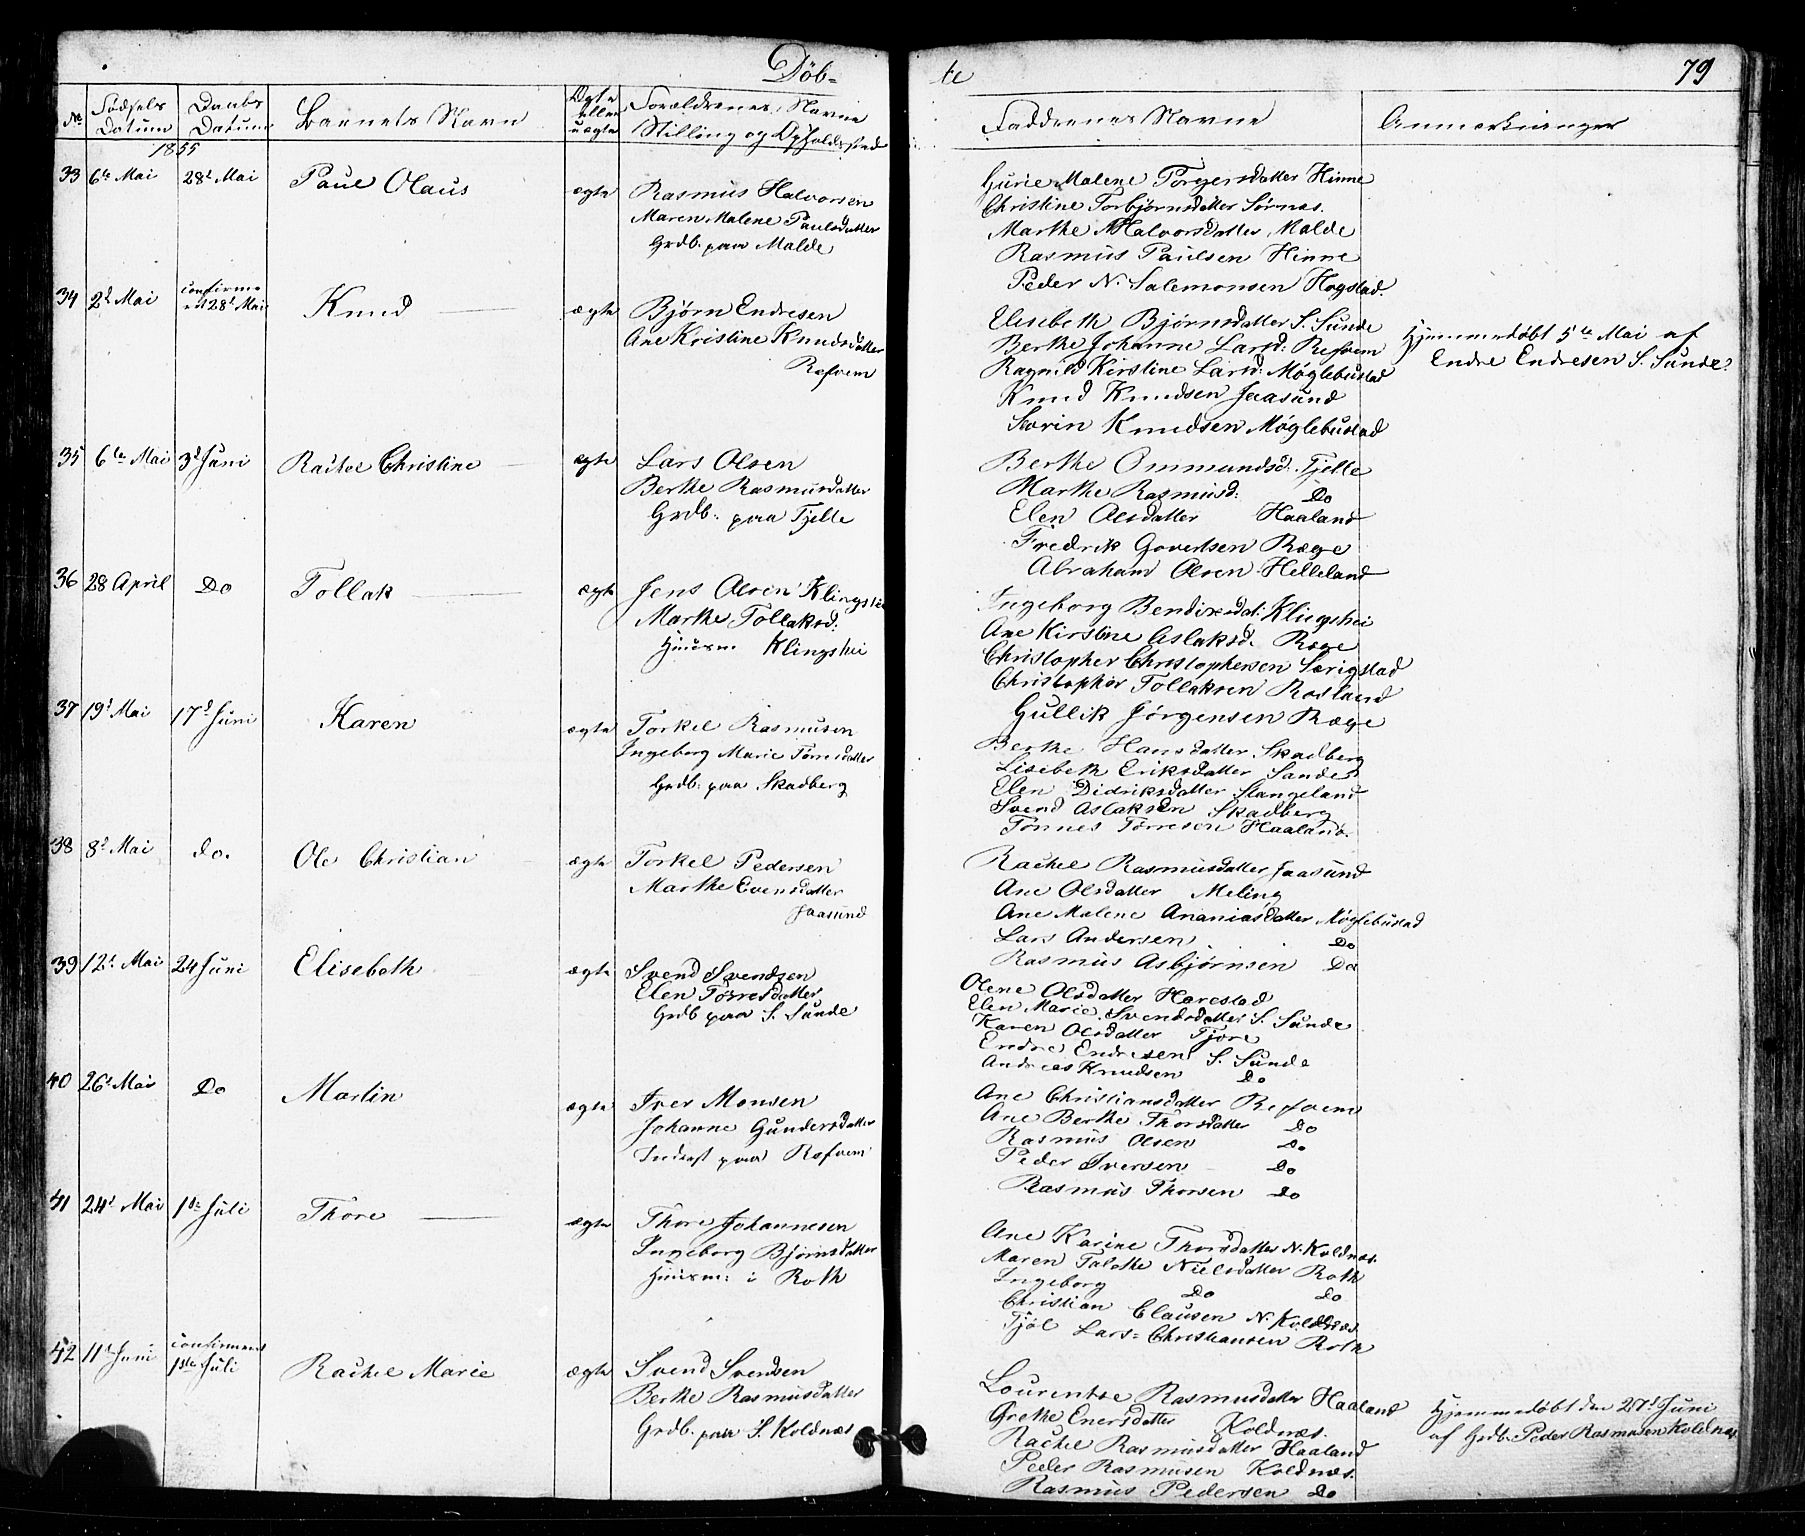 Döb-
te
79
No
Fødsels Datum
Daabs Datum
Barnets Navn
Ægte eller uægte
Forældrenes Navne
Stilling og Opholdssted
Faddrenes Navne
Anmærkninger
1855
33 6te Mai 28d Mai Paul Olaus ægte Rasmus Halvorsen
Maren Malene Paulsdatter
Grdb. paa Malde
Gurie Malene Torgersdatter Hinne
Christine Torbjørnsdatter Sørnes.
Marthe Halvorsdatter Malde
Rasmus Paulsen Hinne
Peder N. Salemonsen Hogstad.
34 2d Mai confirmeret 28d Mai Knud ægte Bjørn Endresen
Ane Kristine Knudsdatter
Refvem
Elisebeth Bjørnsdatter S. Sunde
Berthe Johanne Larsd: Refvem
Ragnild Kirstine Larsd: Møglebustad
Knud Knudsen Jaasund
Sørin Knudsen Møglebustad
Hjemmedøbt 5te Mai af
Endre Endresen S. Sunde
35 6te Mai 3d Juni Rachel Christine ægte Lars Olsen
Berthe Rasmusdatter
Grdb: paa Tjelte
Berthe Ommundsd. Tjelte
Marthe Rasmusd: Do
Elen Olsdatter Haaland
Fredrik Govertsen Ræge
Abraham Olsen Helleland
36 28 April Do Tollak ægte Jens Olsen Klingshei
Marthe Tollaksd:
Huusm. Klingshei
Ingeborg Bendixsdat: Klingshei
Ane Kirstine Aslaksd. Ræge
Christopher Christophersen Sørigstad
Christopher Tollaksen Rosland
Gullik Jørgensen Ræge
37 19d Mai 17d Juni Karen ægte Torkel Rasmusen
Ingeborg Marie Tønnesdatter
Grdb: paa Skadberg
Berthe Hansdatter Skadberg
Lisebeth Eriksdatter Sande
Elen Didriksdatter Stangeland
Svend Aslaksen Skadberg
Tønnes Tørresen Haaland.
38 8d Mai do. Ole Christian ægte Torkel Pedersen
Marthe Evensdatter
Jaasund
Rachel Rasmusdatter Jaasund
Ane Olsdatter Meling
Ane Malene Ananiasdatter Møglebustad
Lars Andersen Do
Rasmus Asbjørnsen Do
39 12d Mai 24 Juni Elisebeth ægte Svend Svendsen
Elen Tørresdatter
Grdb paa S. Sunde
Olene Olsdatter Harestad
Elen Marie Svendsdatter S. Sunde
Karen Olsdatter Tjore
Endre Endresen S. Sunde
Andreas Knudsen Do
40 26d Mai Do Martin ægte Iver Monsen
Johanne Gundersdatter
Inderst paa Refvem
Ane Christiansdatter Refvem
Ane Berthe Thorsdatter Do
Rasmus Olsen Do
Peder Iversen Do
Rasmus Thorsen Do
41 24d Mai 1ste Juli Thore ægte Thore Johannesen
Ingeborg Bjørnsdatter
Huusm: i Roth
Ane Karine Thorsdatter N. Koldnæs.
Maren Talette Nielsdatter Roth
Ingeborg Do Do
Christian Clausen N. Koldnæs.
Tjøl Lars-Christiansen Roth
42 11d Juni confirmeret 1ste Juli Rachel Marie ægte Svend Svendsen
Berthe Rasmusdatter
Grdb. paa S. Koldnæs
Lourentse Rasmusdatter Haaland
Grethe Enersdatter Koldnæs.
Rachel Rasmusdatter Haaland
Peder Rasmusen Koldnæs.
Rasmus Pedersen Do
Hjemmedøbt den 27d Juni
af Grdb. Peder Rasmusen Koldnæs